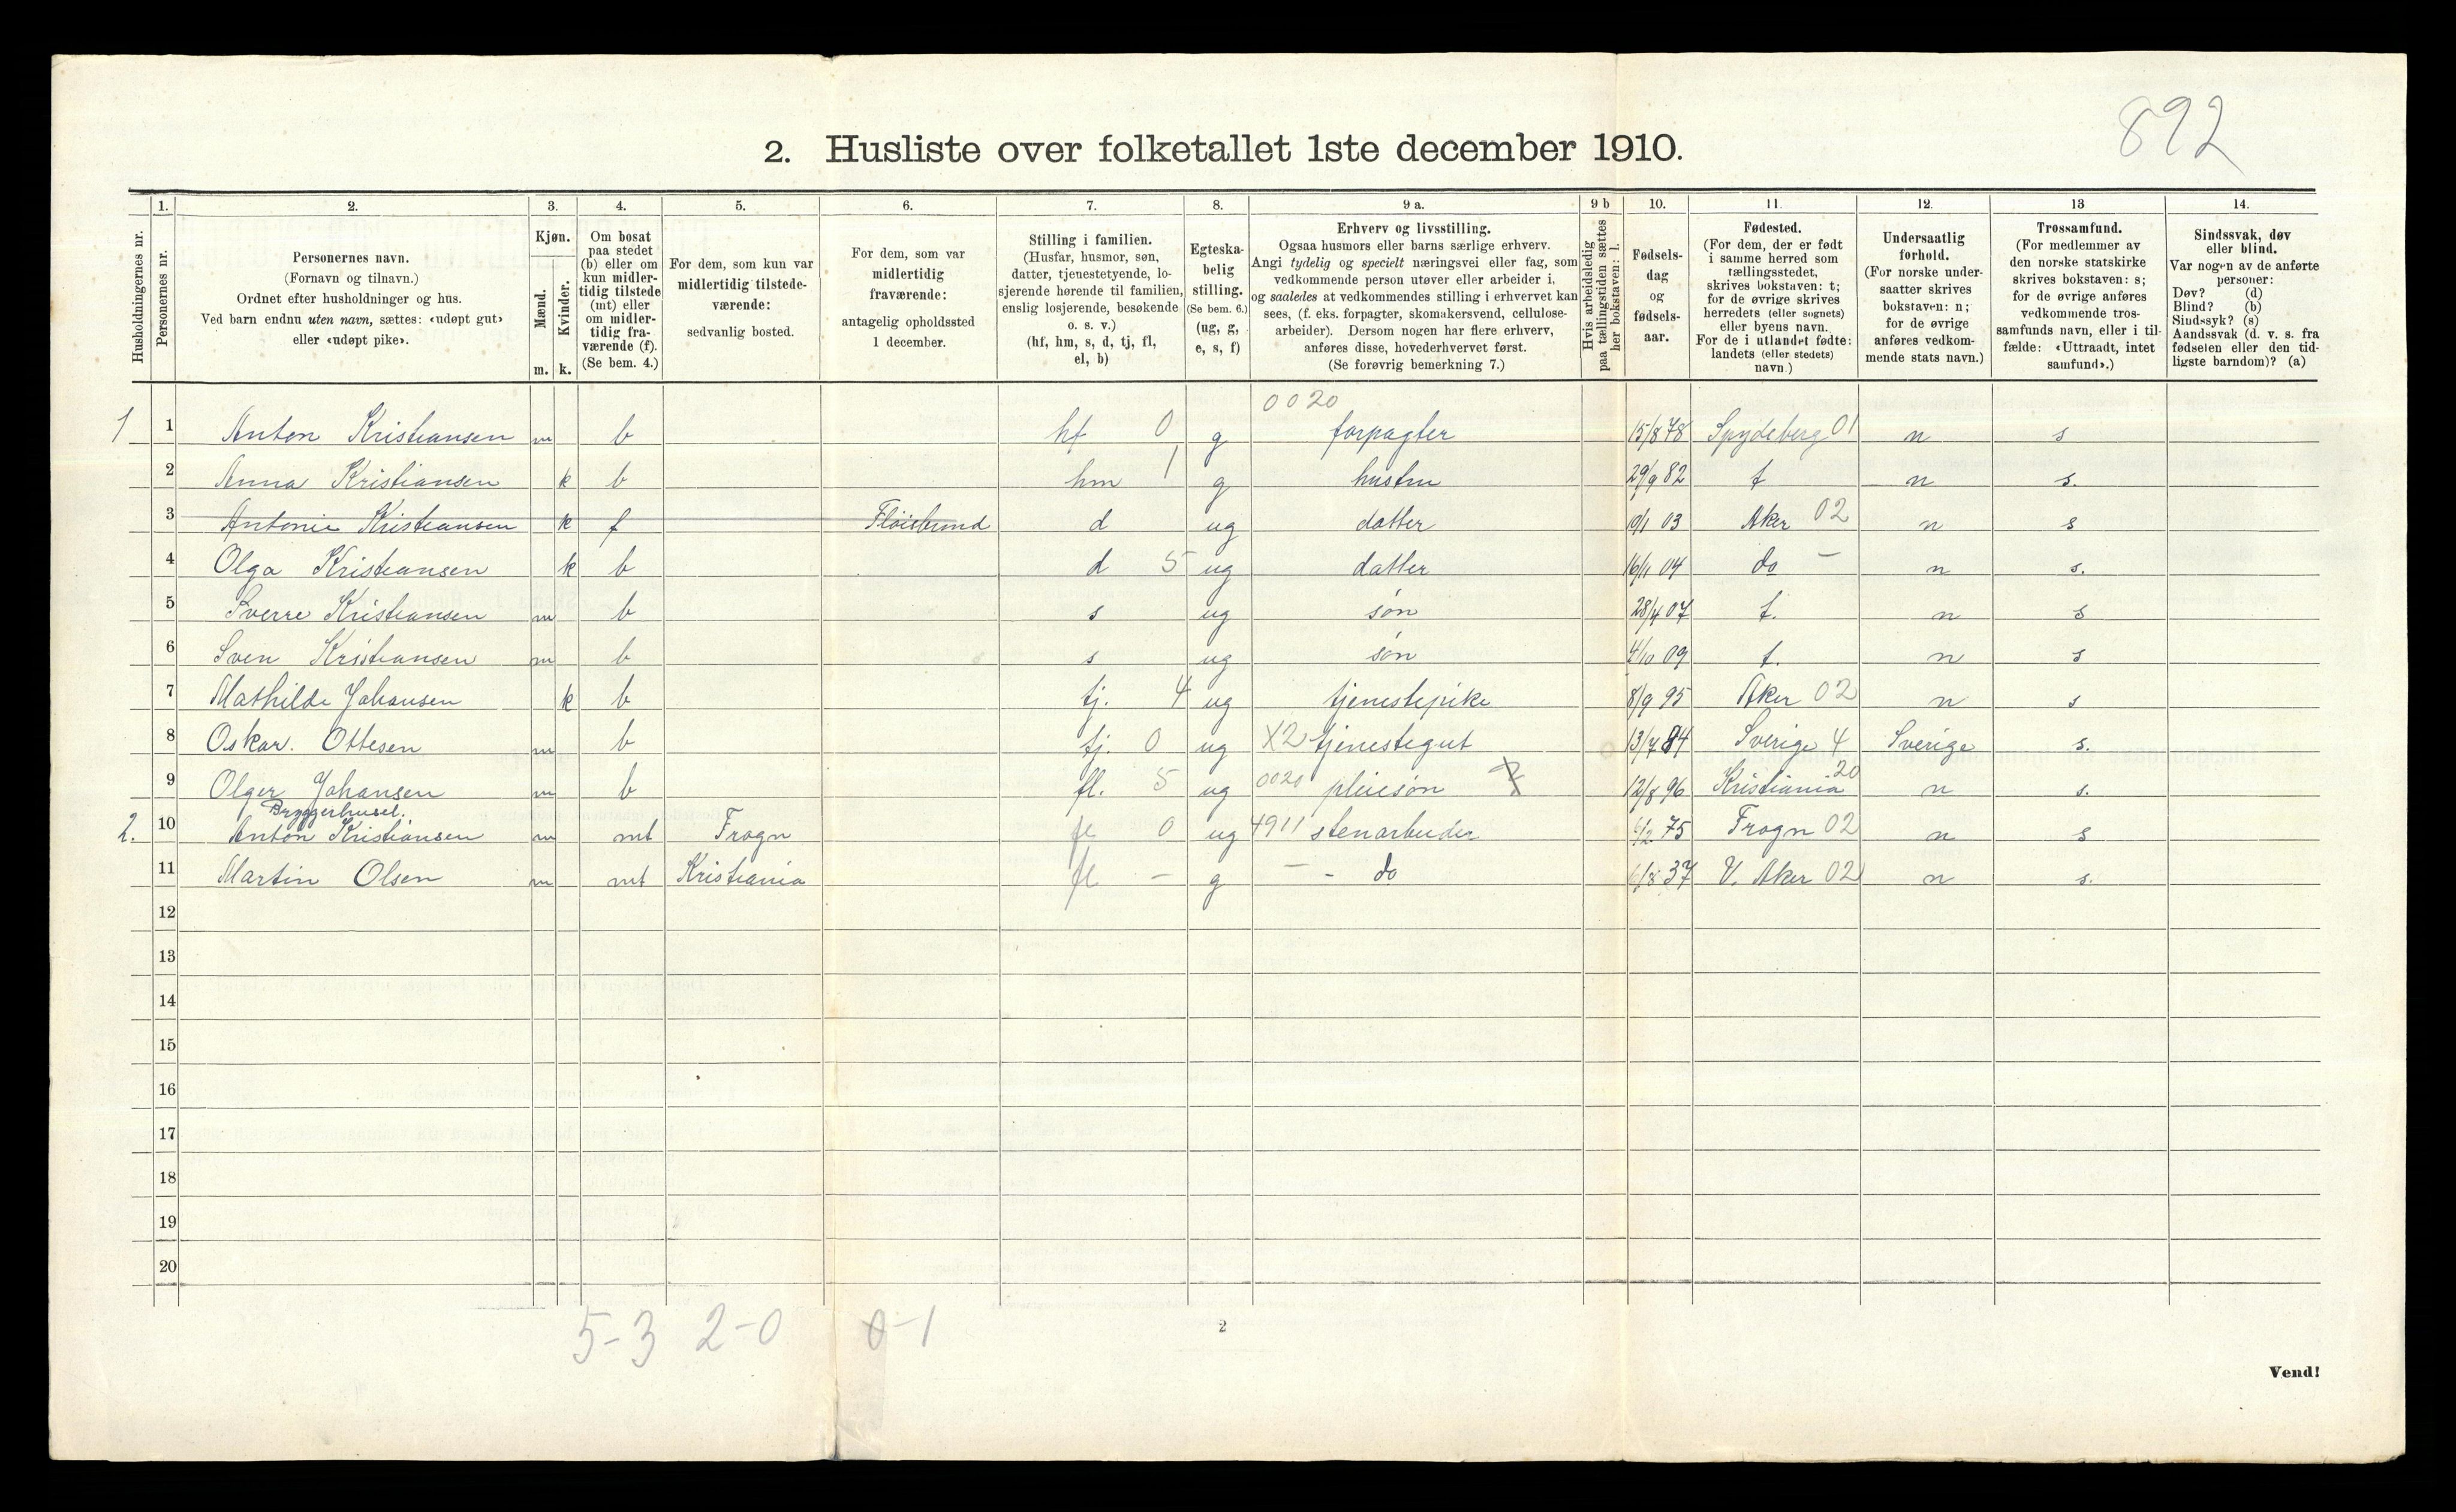 892
2. Husliste over folketallet 1ste december 1910.
Husholdningernes nr.
1. Personernes nr.
2. Personernes navn.
(Fornavn og tilnavn.)
Ordnet efter husholdninger og hus.
Ved barn endnu uten navn, sættes: «udøpt gut»
eller «udøpt pike».
3. Kjøn.
Mænd. Kvinder.
m. k.
4. Om bosat
paa stedet
(b) eller om
kun midler-
tidig tilstede
(mt) eller
om midler-
tidig fra-
værende (f).
(Se bem. 4.)
5. For dem, som kun var
midlertidig tilstede-
værende:
sedvanlig bosted.
6. For dem, som var
midlertidig
fraværende:
antagelig opholdssted
1 december.
7. Stilling i familien.
(Husfar, husmor, søn,
datter, tjenestetyende, lo-
sjerende hørende til familien,
enslig losjerende, besøkende
o. s. v.)
(hf, hm, s, d, tj, fl,
el, b)
8. Egteska-
belig
stilling.
(Se bem. 6.)
(ug, g,
e, s, f)
9 a. Erhverv og livsstilling.
Ogsaa husmors eller barns særlige erhverv.
Angi tydelig og specielt næringsvei eller fag, som
vedkommende person utøver eller arbeider i,
og saaledes at vedkommendes stilling i erhvervet kan
sees, (f. eks. forpagter, skomakersvend, cellulose-
arbeider). Dersom nogen har flere erhverv,
anføres disse, hovederhvervet først.
(Se forøvrig bemerkning 7.)
9 b Hvis arbeidsledig
paa tællingstiden sættes
her bokstaven: l.
10. Fødsels-
dag
og
fødsels-
aar.
11. Fødested.
(For dem, der er født
i samme herred som
tællingsstedet,
skrives bokstaven: t;
for de øvrige skrives
herredets (eller sognets)
eller byens navn.
For de i utlandet fødte:
landets (eller stedets)
navn.)
12. Undersaatlig
forhold.
(For norske under-
saatter skrives
bokstaven: n;
for de øvrige
anføres vedkom-
mende stats navn.)
13 Trossamfund.
(For medlemmer av
den norske statskirke
skrives bokstaven: s;
for de øvrige anføres
vedkommende tros-
samfunds navn, eller i til-
fælde: «Uttraadt, intet
samfund».)
14. Sindssvak, døv
eller blind.
Var nogen av de anførte
personer:
Døv? (d)
Blind? (b)
Sindssyk? (s)
Aandssvak (d. v. s. fra
fødselen eller den tid-
ligste barndom)? (a)
0020
1 1 Anton Kristiansen m b hf 0 g forpagter 15/8 78 Spydeberg 01 n s
2 Anna Kristiansen k b hm 1 g hustru 29/9 82 t n s.
3 Antonie Kristiansen k f Fløisbund d ug datter 19/1 03 Aker 02 n s
4 Olga Kristiansen k b d 5 ug datter 16/11 04 do – n s.
5 Sverre Kristiansen m b s ug søn 28/4 07 t. n s
6 Sven Kristiansen m b s ug søn 4/10 09 t. n s
7 Mathilde Johansen k b tj. 4 ug tjenestepike 8/9 95 Aker 02 n s
8 Oskar. Ottesen m b tj. 0 ug X2 tjenestegut 13/7 84 Sverige 4 Sverige s.
9 Olger Johansen m b fl. 5 ug 0020 pleiesøn 12/8 96 Kristiania 20 n s.
Bryggerhuset.
2. 10 Anton Kristiansen m mt Frogn fl 0 ug 4911 stenarbeider 6/2 75 Frogn 02 n s
11 Martin Olsen m mt Kristiania fl – g – - do 6/8 37 V. Aker 02 n s.
12
13
14
15
16
17
18
19
20
5-3 2-0 0-1
2
Vend!